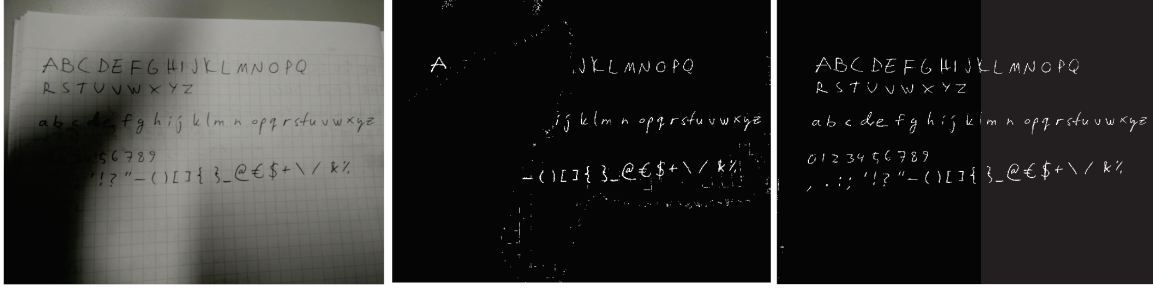 ABCDEFGHIJKLMNOPQ
RSTUVWXYZ
abcdefghijklmnopqrstuvwxyz
456789
'!?"-()[]{}_@€$+\/&%
A JKLMNOPQ
ijklmnopqrstuvwxyz
-()[]{}_@€$+\/&%
ABCDEFGHIJKLMNOPQ
RSTUVWXYZ
abcdefghijklmnopqrstuvwxyz
0123456789
,.:;'!?"-()[]{}_@€$+\/&%